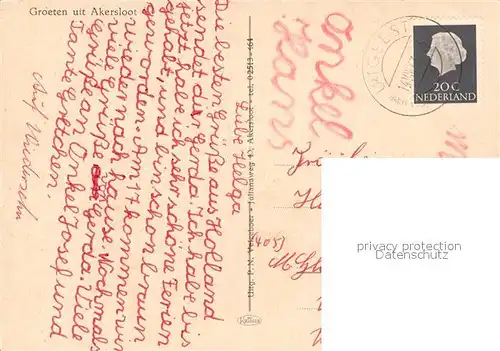 Groeten uit Akersloot
Liebe Helga
Die besten Grüße aus Holland
sendet dir Gerda. Ich habe bis
jetzt habe ich sehr schöne Ferien
gehabt, und bin schon braun
geworden. Am 17 kommen wir
wieder nach hause. Nochmals
viele Grüße Gerda. Viele
Grüße an Onkel Josef und
Tante Gretchen.
Auf Wiedersehn
Onkel
Hans
Uitg. P. N. Akersloot - tel. 02513-464
20 C
NEDERLAND
(405)
M. Gl
privacy protection
by AKPool